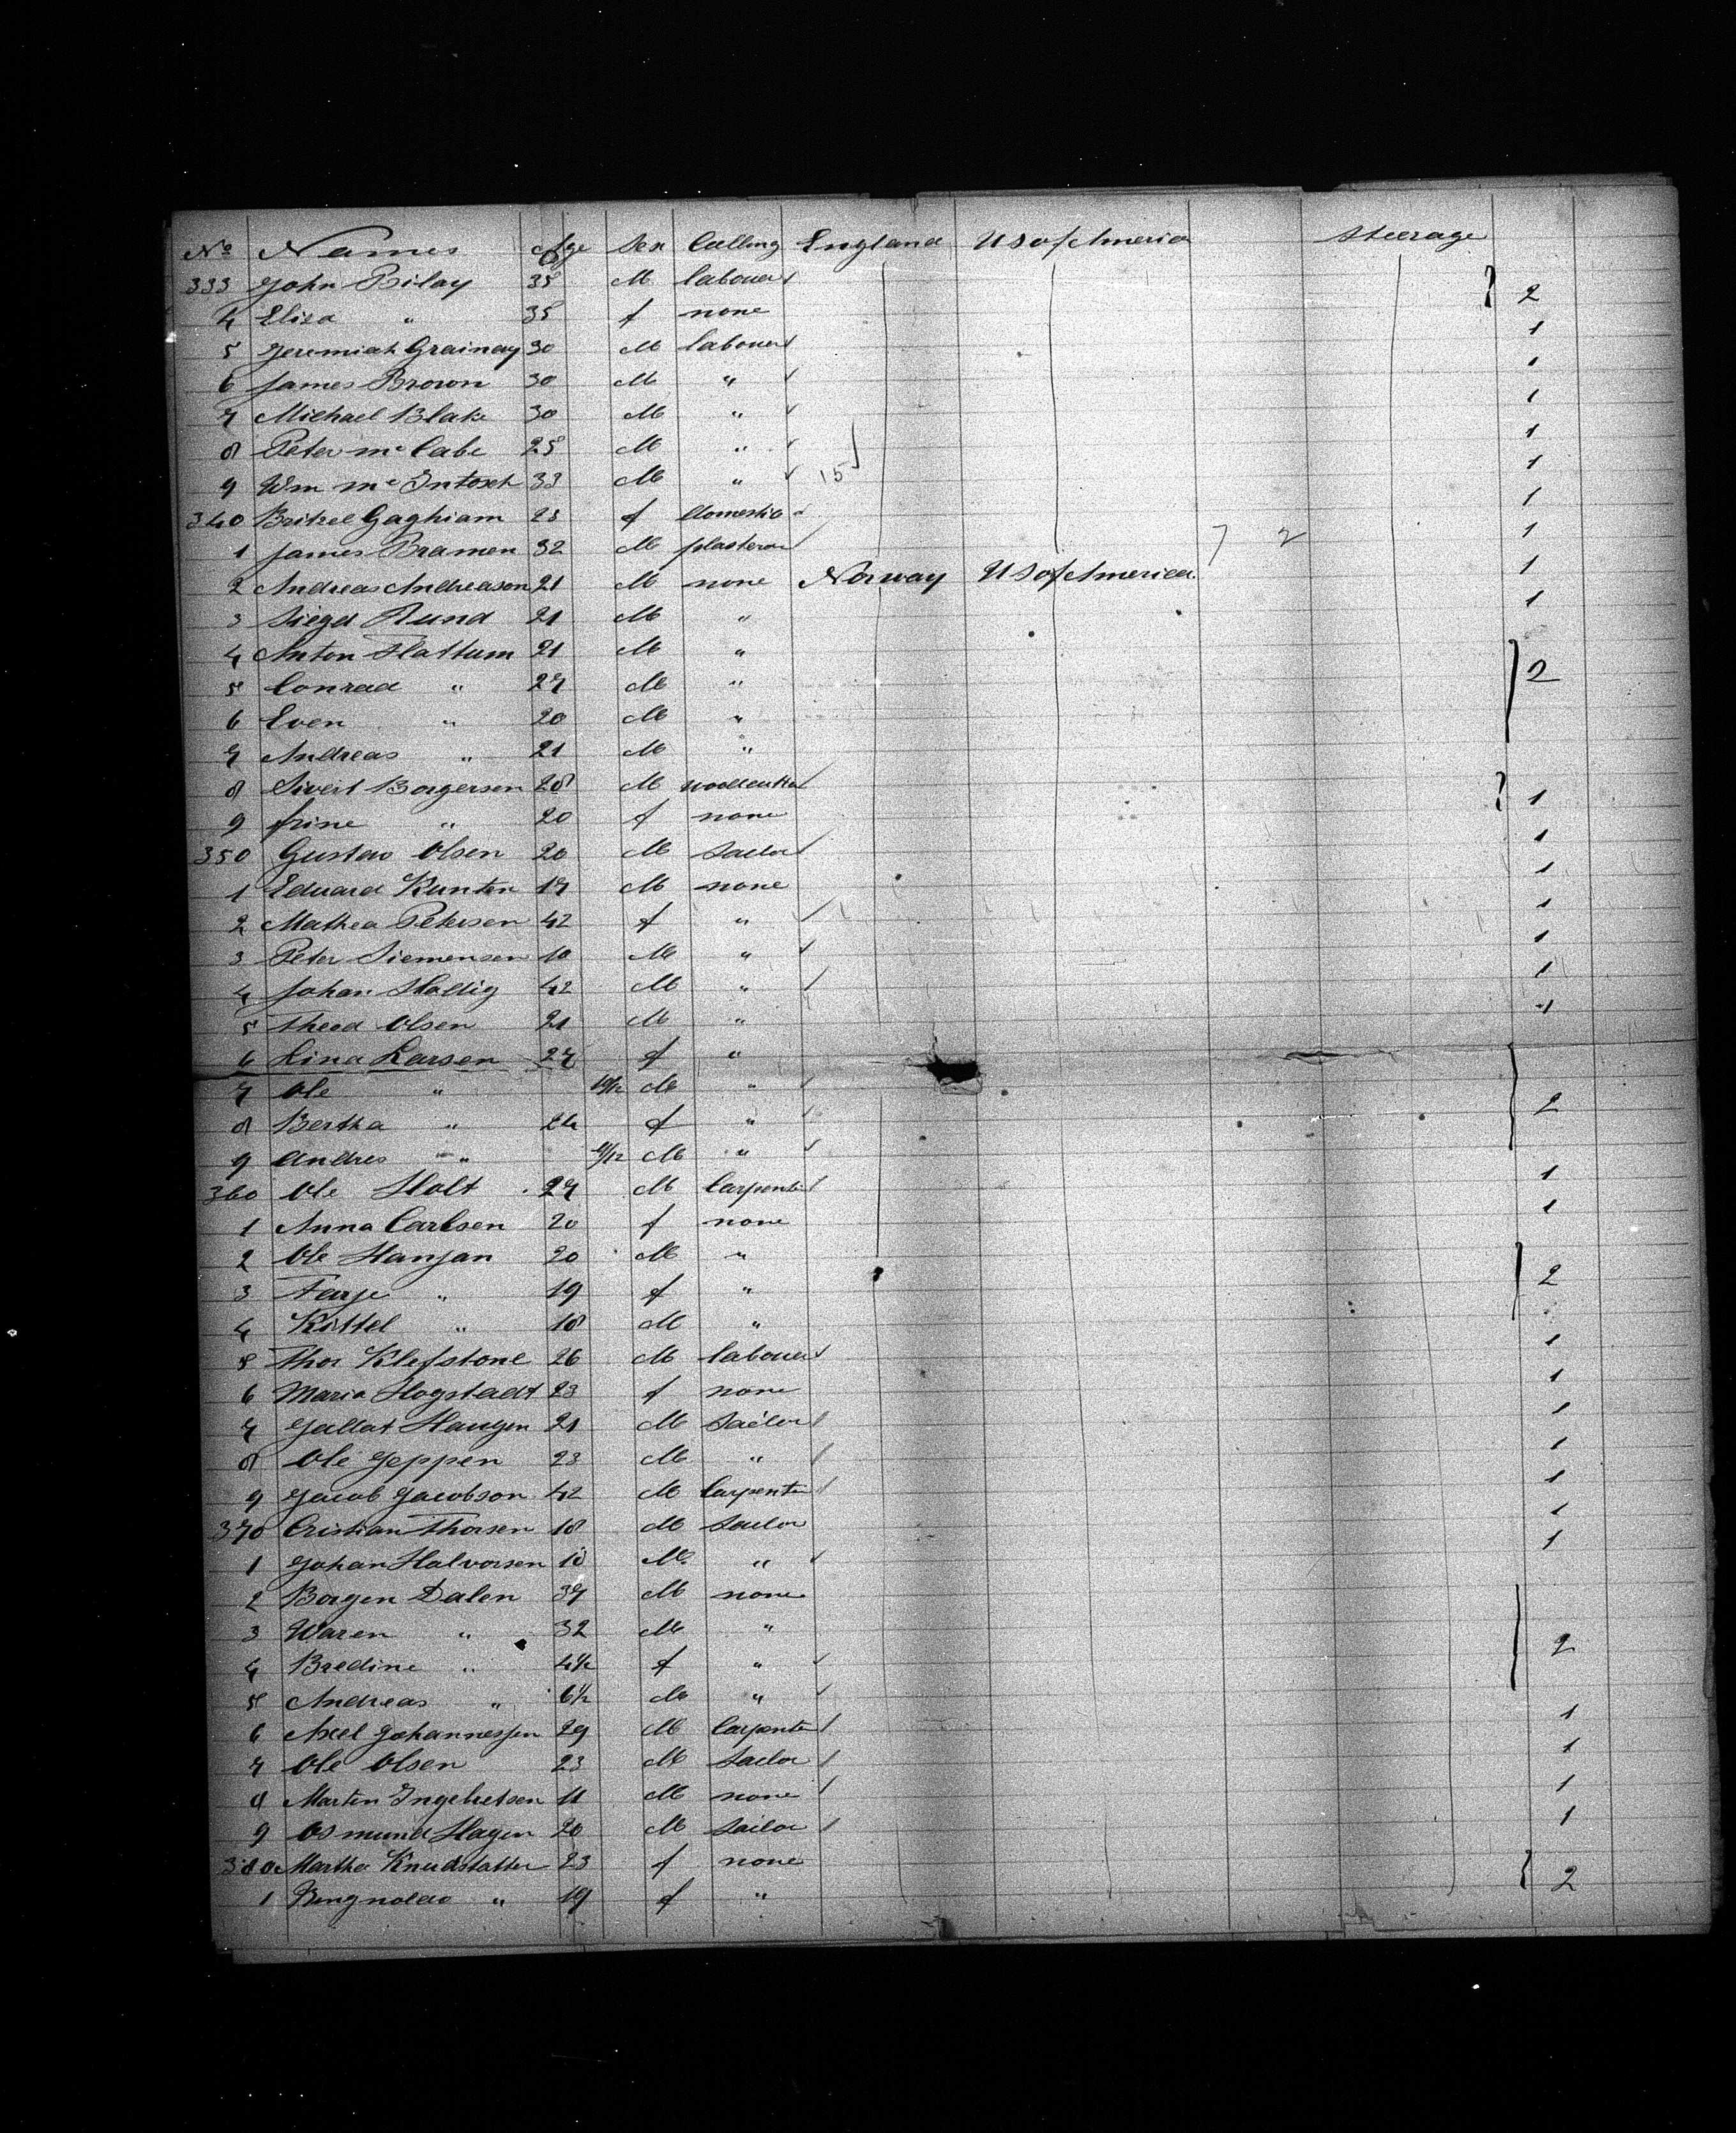 No Names Age Sex Calling England US of America Steerage
333 John Bilay 35 M labouer
4 Elisa " 35 f none 2
5 Jeremiah Grainay 30 M labouer 1
6 James Brown 30 M " 1
7 Michael Blake 30 M " 1
8 Peter mc Cabe 25 M " 1
9 Wm mc Intosch 33 M " 15 1
340 Gaghiam 23 f domestic 1
1 James Bramen 32 M plasterer 7 2 1
2 Andreas Andreason 21 M none Norway US of America 1
3 Siegd Rund 21 M " 1
4 Anton Hattum 21 M "
5 Conrad " 27 M " 2
6 Even " 20 M "
7 Andreas " 21 M "
8 Sivert Borgersen 28 M woodcutter
9 " 20 f none 1
350 Gustav Olsen 20 M Sailor 1
1 Eduard Kunten 17 M none 1
2 Mathea Petersen 42 f " 1
3 Peter Siemensen 10 M " 1
4 Johan Hadig 42 M " 1
5 Theod Olsen 21 M " 1
6 Lina Larsen 27 f "
7 Ole " 10/12 M "
8 Bertha " 24 f " 2
9 Andres " M "
360 Ole Holt 27 M Carpenter 1
1 Anna Carlsen 20 f none 1
2 Ole Hansan 20 M "
3 Tarje " 19 f " 2
4 Kittel " 18 M "
5 Thor Klefstone 26 M labouer 1
6 Maria Hogstadt 23 f none 1
7 Gallat Haugen 21 M Sailor 1
8 Ole Jeppen 23 M " 1
9 Jacob Jacobson 42 M Carpenter 1
370 Cristian Thorsen 18 M Sailor 1
1 Johan Halvorsen 18 M " 1
2 Borgen Dalen 37 M none
3 Waren " 32 M "
4 Bredine " 4½ f " 2
5 Andreas " 6½ M "
6 Axel Johannessen 29 M Carpenter 1
7 Ole Olsen 23 M Sailor 1
8 Martin Ingebretsen 11 M none 1
9 Osmund Hagen 20 M Sailor 1
380 Martha Knudstatter 23 f none
1 " 19 f " 2